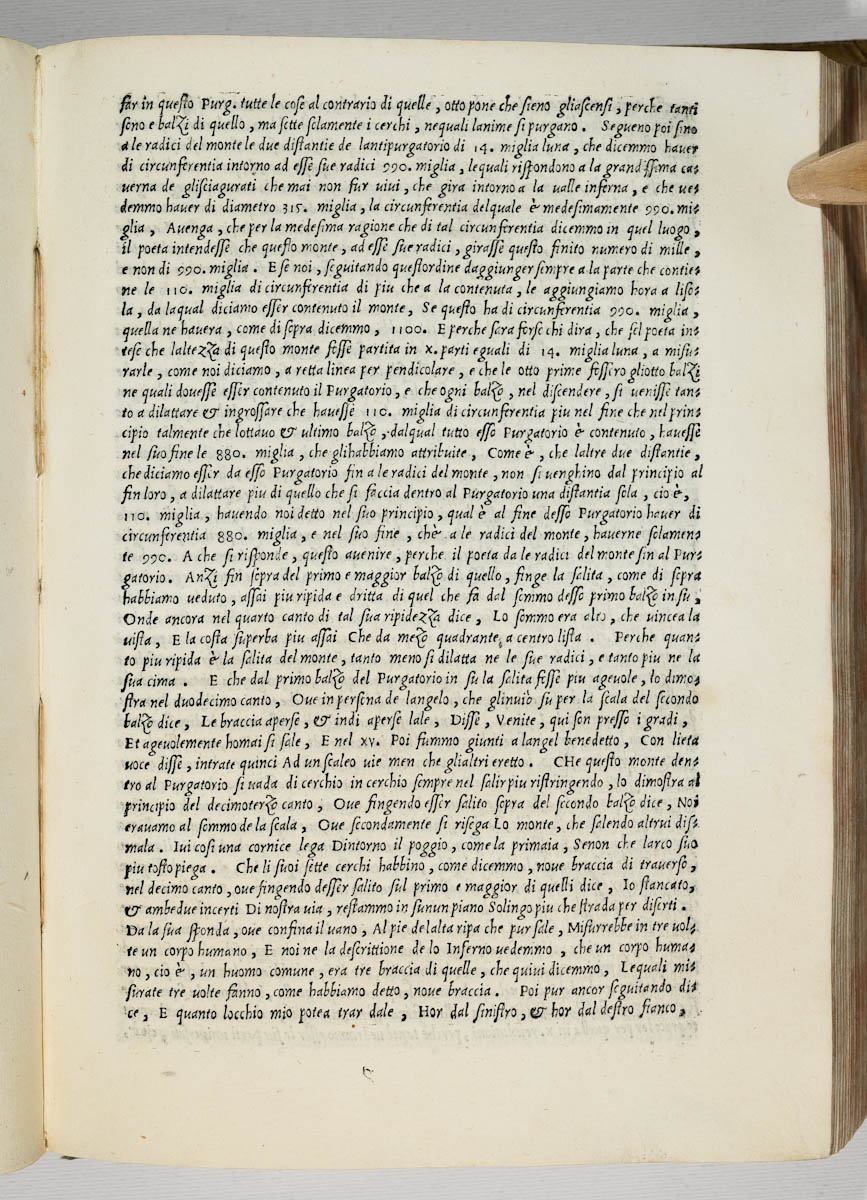 far in questo Purg. tutte le cose al contrario di quelle, otto pone che sieno gliascensi, perche tanti
sono e balzi di quello, ma sette solamente i cerchi, nequali lanime si purgano. Segueno poi sino
a le radici del monte le due distantie de lantipurgatorio di 14. miglia luna, che dicemmo hauer
di circunferentia intorno ad esse sue radici 990. miglia, lequali rispondono a la grandissima ca-
uerna de glisciagurati che mai non fur uiui, che gira intorno a la ualle inferna, e che ue-
demmo hauer di diametro 315. miglia, la circunferentia delquale è medesimamente 990. mi-
glia, Auenga, che per la medesima ragione che di tal circunferentia dicemmo in quel luogo,
il poeta intendesse che questo monte, ad esse sue radici, girasse questo finito numero di mille,
e non di 990. miglia. E se noi, seguitando questordine daggiunger sempre a la parte che contie-
ne le 110. miglia di circunferentia di piu che a la contenuta, le aggiungiamo hora a liso-
la, da laqual diciamo esser contenuto il monte, Se questo ha di circunferentia 990. miglia,
quella ne hauera, come di sopra dicemmo, 1100. E perche sara forse chi dira, che sel poeta in-
tese che laltezza di questo monte fosse partita in x. parti eguali di 14. miglia luna, a misu-
rarle, come noi diciamo, a retta linea per pendicolare, e che le otto prime fossero gliotto balzi
ne quali douesse esser contenuto il Purgatorio, e che ogni balzo, nel discendere, si uenisse tan-
to a dilattare & ingrossare che hauesse 110. miglia di circunferentia piu nel fine che nel prin-
cipio talmente che lottauo & ultimo balzo, dalqual tutto esso Purgatorio è contenuto, hauesse
nel suo fine le 880. miglia, che glihabbiamo attribuite, Come è, che laltre due distantie,
che diciamo esser da esso Purgatorio fin a le radici del monte, non si uenghino dal principio al
fin loro, a dilattare piu di quello che si faccia dentro al Purgatorio una distantia sola, cio è,
110. miglia, hauendo noi detto nel suo principio, qual è al fine desso Purgatorio hauer di
circunferentia 880. miglia, e nel suo fine, chè a le radici del monte, hauerne solamen-
te 990. A che si risponde, questo auenire, perche il poeta da le radici del monte sin al Pur-
gatorio. Anzi fin sopra del primo e maggior balzo di quello, finge la salita, come di sopra
habbiamo ueduto, assai piu ripida e dritta di quel che fa dal sommo desso primo balzo in su,
Onde ancora nel quarto canto di tal sua ripidezza dice, Lo sommo era alto, che uincea la
uista, E la costa superba piu assai Che da mezo quadrante a centro lista. Perche quan-
to piu ripida è la salita del monte, tanto meno si dilatta ne le sue radici, e tanto piu ne la
sua cima. E che dal primo balzo del Purgatorio in su la salita fosse piu ageuole, lo dimo-
stra nel duodecimo canto, Oue in persona de langelo, che glinuiò su per la scala del secondo
balzo dice, Le braccia aperse, & indi aperse lale, Disse, Venite, qui son presso i gradi,
Et ageuolemente homai si sale, E nel xv. Poi fummo giunti a langel benedetto, Con lieta
uoce disse, intrate quinci Ad un scaleo uie men che glialtri eretto. CHe questo monte den-
tro al Purgatorio si uada di cerchio in cerchio sempre nel salir piu ristringendo, lo dimostra al
principio del decimoterzo canto, Oue fingendo esser salito sopra del secondo balzo dice, Noi
erauamo al sommo de la scala, Oue secondamente si risega Lo monte, che salendo altrui dis-
mala. Iui cosi una cornice lega Dintorno il poggio, come la primaia, Senon che larco suo
piu tosto piega. Che li suoi sette cerchi habbino, come dicemmo, noue braccia di trauerso,
nel decimo canto, oue fingendo desser salito sul primo e maggior di quelli dice, Io stancato,
& ambedue incerti Di nostra uia, restammo in sunun piano Solingo piu che strada per diserti.
Da la sua sponda, oue confina il uano, Al pie de lalta ripa che pur sale, Misurrebbe in tre uol-
te un corpo humano, E noi ne la descrittione de lo Inferno uedemmo, che un corpo huma-
no, cio è, un huomo comune, era tre braccia di quelle, che quiui dicemmo, Lequali mi-
surate tre uolte fanno, come habbiamo detto, noue braccia. Poi pur ancor seguitando di-
ce, E quanto locchio mio potea trar dale, Hor dal sinistro, & hor dal destro fianco,